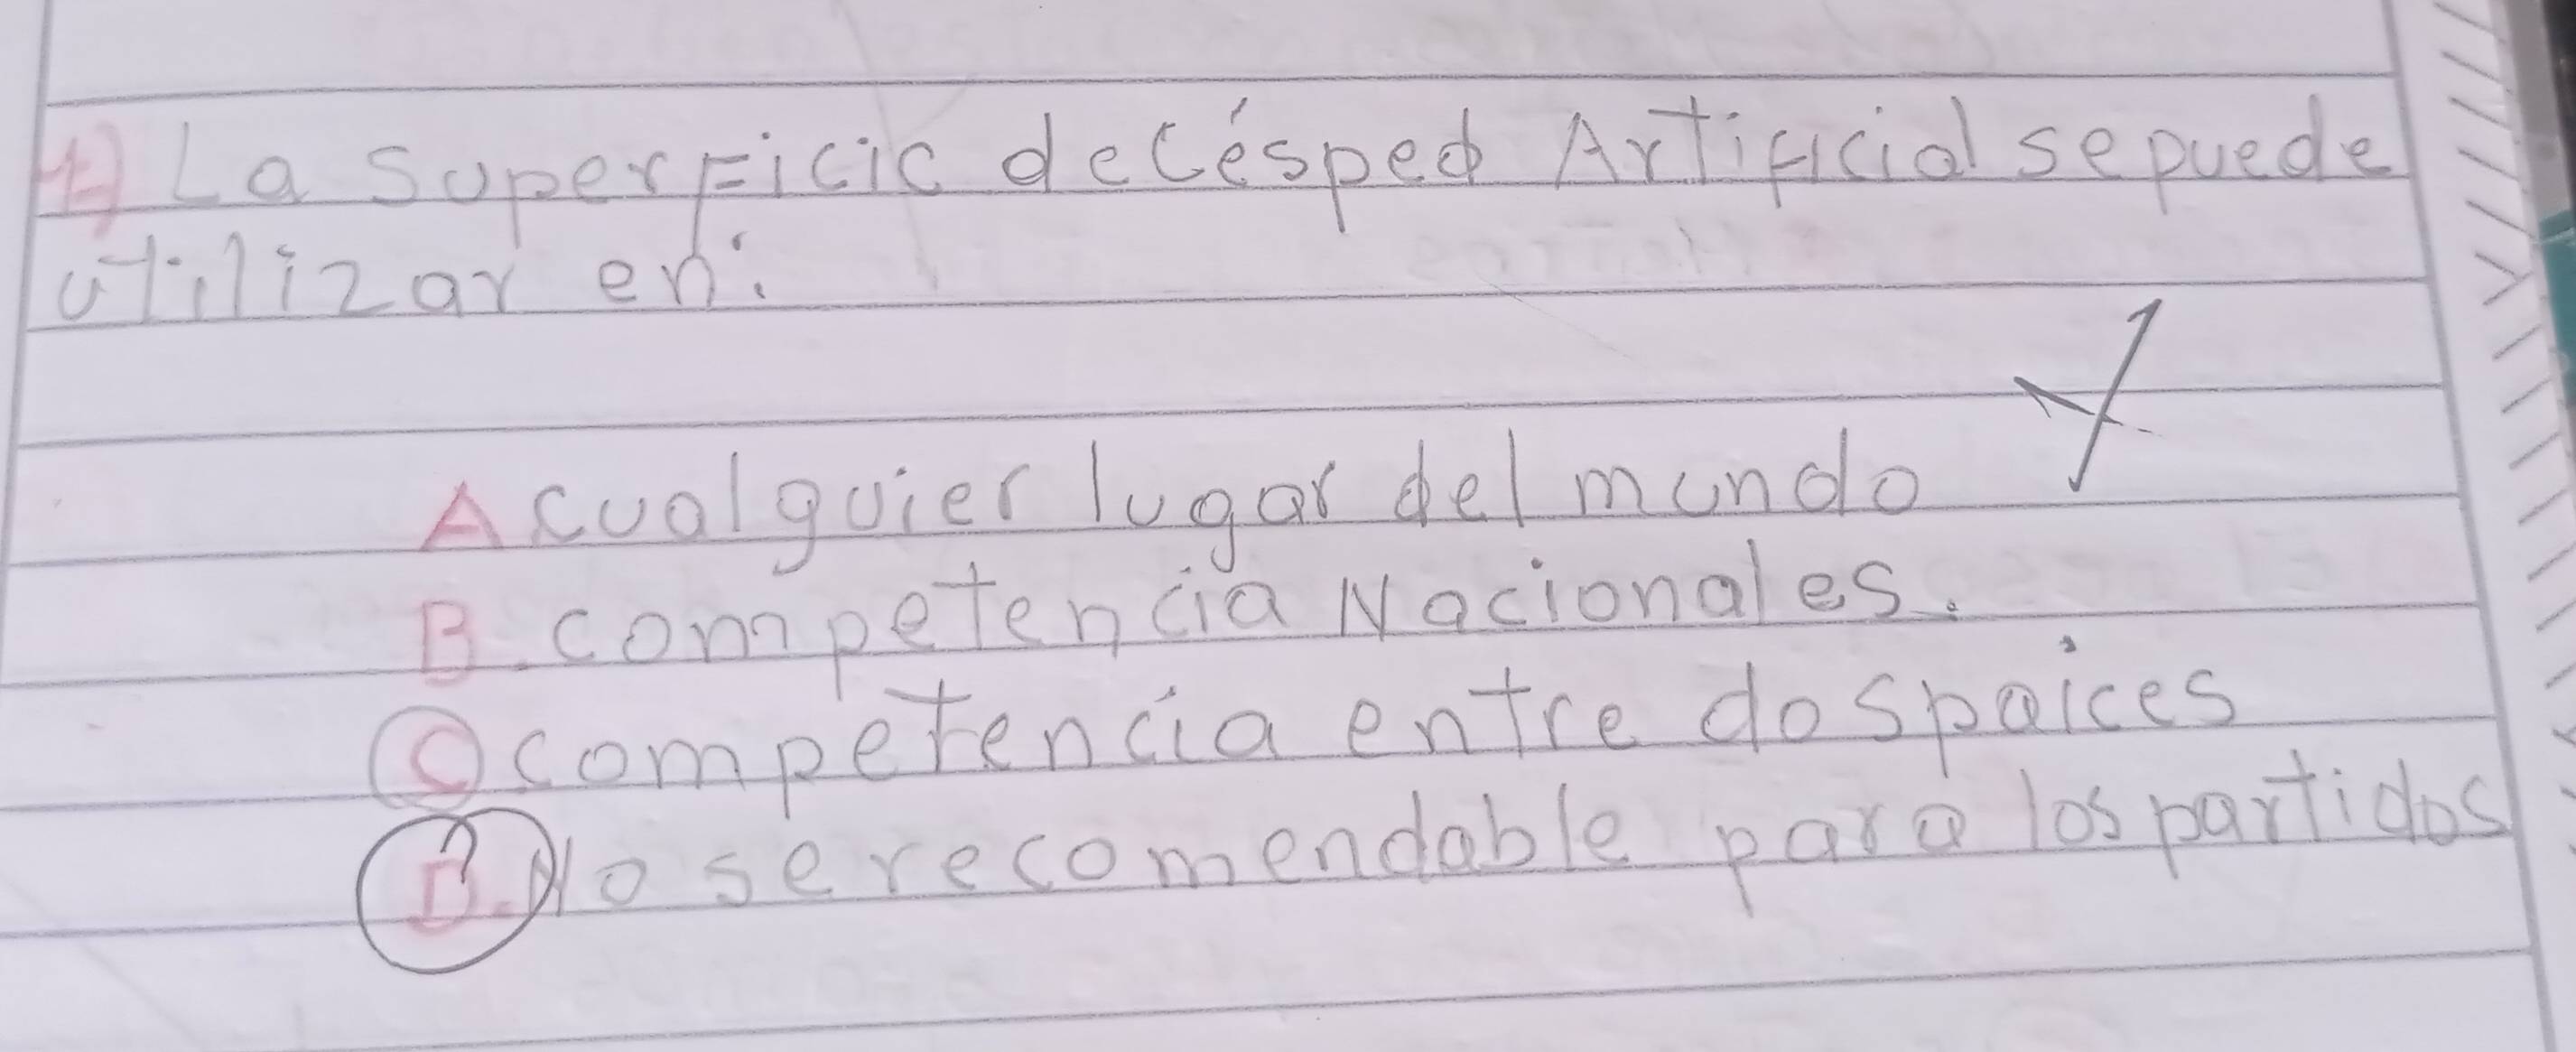 1) La SuperFicie de Césped Artificial se puede
utilizar en:
A cualquier lugar del mundo
B. competencia Nacionales.
C competencia entre dos paíces
D. No se recomendable para los partidos